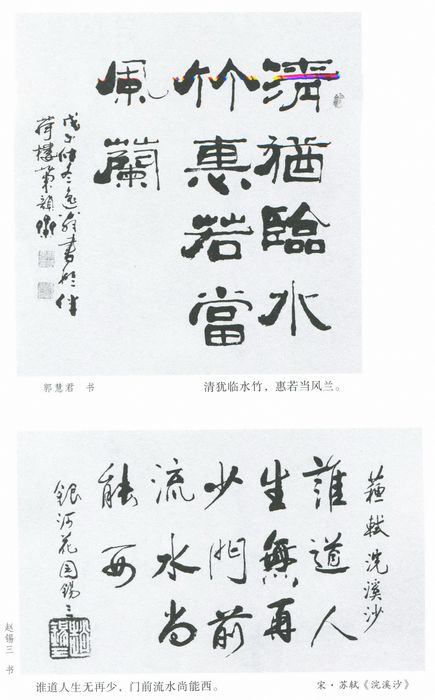 清猶臨水
竹惠若當
風蘭
戊子仲冬 書於伴
荷樓
郭慧君 书
清犹临水竹，惠若当风兰。
蘓軾浣溪沙
誰道人
生無再
少門前
流水尚
能西
銀河花园錫三
赵锡三 书
谁道人生无再少，门前流水尚能西。
宋·苏轼《浣溪沙》